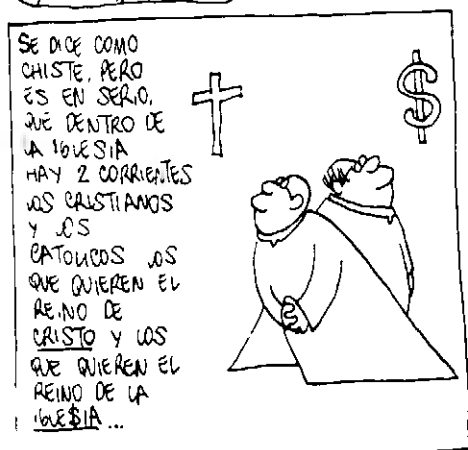 SE DICE COMO
CHISTE, PERO
ES EN SERIO,
QUE DENTRO DE
LA IGLESIA
HAY 2 CORRIENTES
LOS CRISTIANOS
Y LOS
CATOLICOS LOS
QUE QUIEREN EL
REINO DE
CRISTO Y LOS
QUE QUIEREN EL
REINO DE LA
IGLE$IA...
$